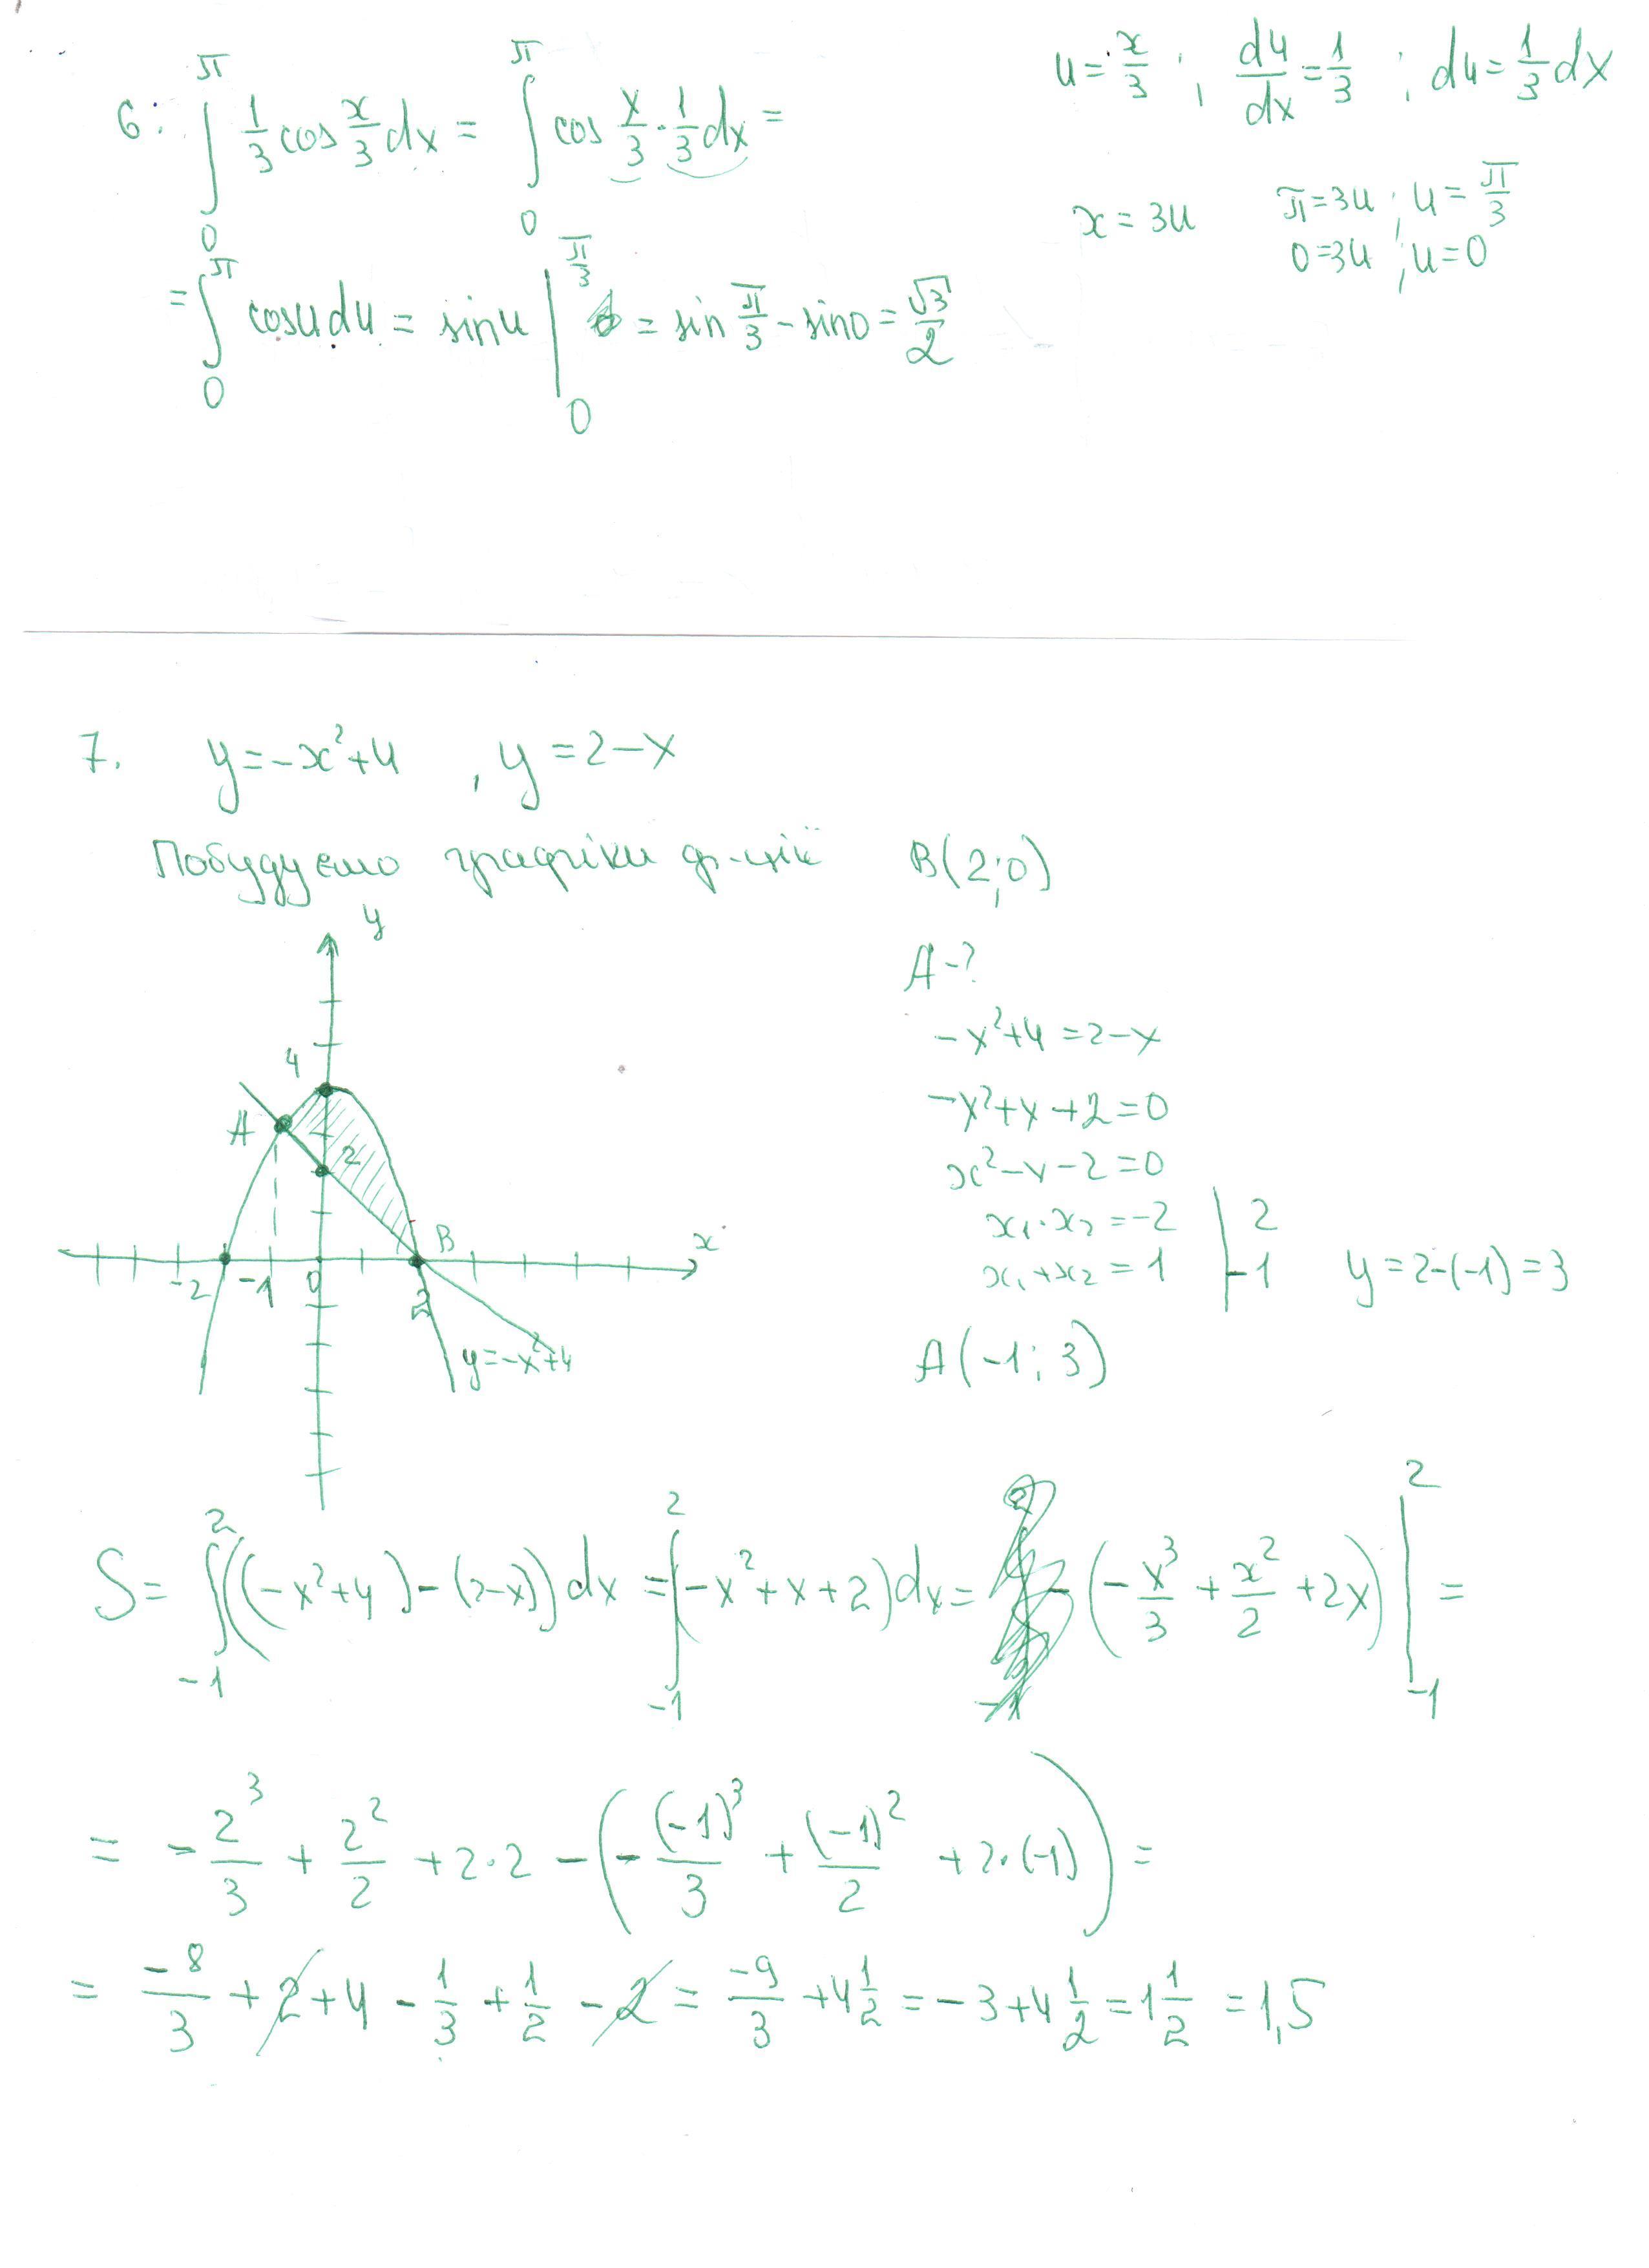 6. ∫₀^π 1/3 cos x/3 dx = ∫₀^π cos x/3 · 1/3 dx =
u = x/3 ; du/dx = 1/3 ; du = 1/3 dx
x = 3u π = 3u ; u = π/3
0 = 3u ; u = 0
= ∫₀^π cos u du = sin u |₀^(π/3) = sin π/3 - sin 0 = √3/2
7. y = -x² + 4 , y = 2 - x
Побудуємо графіки ф-цій B(2;0)
y
A - ?
-x² + 4 = 2 - x
4
-x² + x + 2 = 0
A
2
x² - x - 2 = 0
x₁ · x₂ = -2 | 2
x₁ + x₂ = 1 | -1 y = 2 - (-1) = 3
B
x
-2 -1 0 2
y = -x² + 4
A(-1; 3)
S = ∫₋₁² ((-x² + 4) - (2 - x)) dx = ∫₋₁² (-x² + x + 2) dx = - (-x³/3 + x²/2 + 2x) |₋₁² =
= - 2³/3 + 2²/2 + 2·2 - (- (-1)³/3 + (-1)²/2 + 2·(-1)) =
= -8/3 + 2 + 4 - 1/3 + 1/2 - 2 = -9/3 + 4 1/2 = -3 + 4 1/2 = 1 1/2 = 1,5